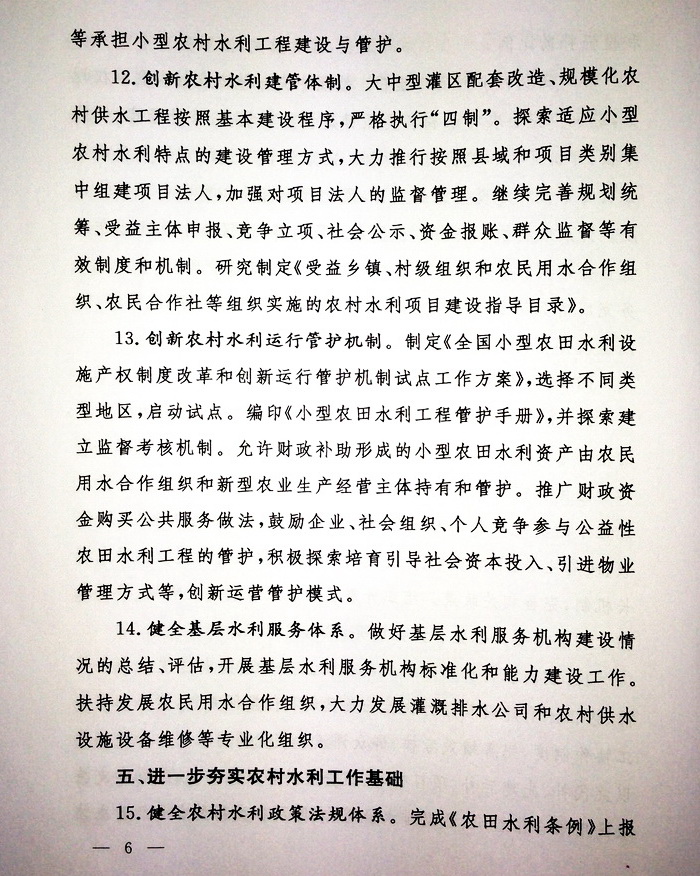 等承担小型农村水利工程建设与管护。
12.创新农村水利建管体制。大中型灌区配套改造、规模化农
村供水工程按照基本建设程序,严格执行“四制”。探索适应小型
农村水利特点的建设管理方式,大力推行按照县域和项目类别集
中组建项目法人,加强对项目法人的监督管理。继续完善规划统
筹、受益主体申报、竞争立项、社会公示、资金报账、群众监督等有
效制度和机制。研究制定《受益乡镇、村级组织和农民用水合作组
织、农民合作社等组织实施的农村水利项目建设指导目录》。
13.创新农村水利运行管护机制。制定《全国小型农田水利设
施产权制度改革和创新运行管护机制试点工作方案》,选择不同类
型地区,启动试点。编印《小型农田水利工程管护手册》,并探索建
立监督考核机制。允许财政补助形成的小型农田水利资产由农民
用水合作组织和新型农业生产经营主体持有和管护。推广财政资
金购买公共服务做法,鼓励企业、社会组织、个人竞争参与公益性
农田水利工程的管护,积极探索培育引导社会资本投入、引进物业
管理方式等,创新运营管护模式。
14.健全基层水利服务体系。做好基层水利服务机构建设情
况的总结、评估,开展基层水利服务机构标准化和能力建设工作。
扶持发展农民用水合作组织,大力发展灌溉排水公司和农村供水
设施设备维修等专业化组织。
五、进一步夯实农村水利工作基础
15.健全农村水利政策法规体系。完成《农田水利条例》上报
— 6 —